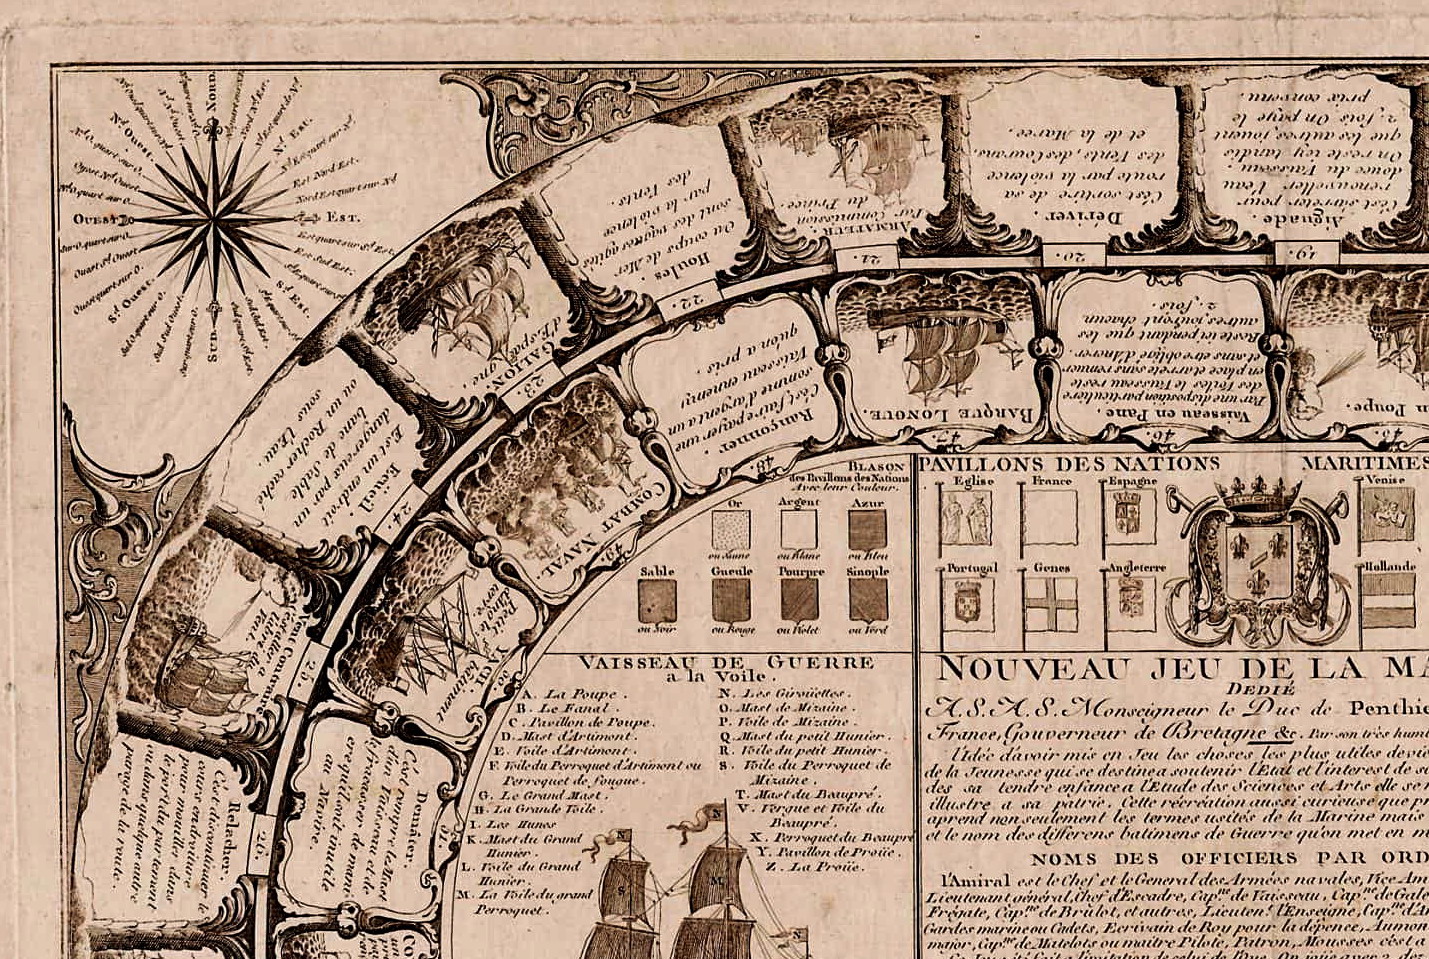 Nord
Nd. Ouest.
Nd. Est.
Est Nord Est.
Nord Est quart sur Nd
Ouest
Est.
Est quart sur Sd. Est
Est Sud Est.
Sd. Est.
Sd. Ouest.
Sud.
Relacher.
C'est discontinuer le
cours en droiture
pour mouiller dans
le port ou prenant
ou dans quelque autre
parage de la route.
26.
25.
Ecueil
Est un endroit
dangereux par un
banc de Sable
ou un Rocher caché
sous l'Eau.
24.
GALION
d'Espagne.
23.
Houles.
Ou coups de Mer,
sont des vagues agitées
par la violence
des Vents.
22.
ARMATEUR
Par Commission
du Prince.
21.
Deriver.
C'est sortir de sa
route par la violence
des Vents des Courans,
et de la Marée.
20.
Aiguade.
C'est s'arrêter pour
renouveller l'eau
douce du Vaisseau.
On reste icy tandis
que les autres jouent
2. fois. On paye le
prix convenu.
19.
Demâter.
C'est rompre les Mast
d'un Vaisseau et de
le fracasser de manie
re qu'il soit inutile
au Navire.
51.
YACH.
50.
COMBAT NAVAL.
49.
Rançonner.
C'est, faire payer une
somme d'argent a un
Vaisseau ennemy
qu'on a pris.
48.
BARQUE LONGUE.
47.
Vaisseau en Pane.
Par une disposition particuliere
des Voiles le Vaisseau reste
en place et arreté sans remuer
et sans etre obligé d'Ancrer.
Reste ici pendant que les
autres joüront chacun
2. fois.
46.
n Poupe.
45.
BLASON
des Pavillons des Nations
Avec leur Couleur.
Or Argent Azur
ou Jaune ou Blanc ou Bleu
Sable Gueule Pourpre Sinople
ou Noir ou Rouge ou Violet ou Verd
PAVILLONS DES NATIONS MARITIMES
Eglise France Espagne Venise
Portugal Genes Angleterre Hollande
VAISSEAU DE GUERRE
a la Voile.
A. La Poupe.
B. Le Fanal.
C. Pavillon de Poupe.
D. Mast d'Artimont.
E. Voile d'Artimont.
F. Voile du Perroquet d'Artimont ou
Perroquet de fougue.
G. Le Grand Mast.
H. La Grande Voile.
I. Les Hunes
K. Mast du Grand
Hunier.
L. Voile du Grand
Hunier.
M. La Voile du grand
Perroquet.
N. Les Giroüettes.
O. Mast de Mizaine.
P. Voile de Mizaine.
Q. Mast du petit Hunier.
R. Voile du petit Hunier.
S. Voile du Perroquet de
Mizaine.
T. Mast du Beaupré.
V. Vergue et Voile du
Beaupré.
X. Perroquet du Beaupré
Y. Pavillon de Proüe.
Z. La Proüe.
N
N
S
M
N
NOUVEAU JEU DE LA MA
DEDIÉ
A. S. A. S. Monseigneur le Duc de Penthie
France, Gouverneur de Bretagne &c. Par son très humb
l'Idée d'avoir mis en Jeu les choses les plus utiles devie
de la Jeunesse qui se destine a soutenir l'Etat et l'interest de s
des sa tendre enfance a l'Etude des Sciences et Arts elle se r
illustre a sa patrie. Cette récréation aussi curieuse que pr
aprend non seulement les termes usités de la Marine mais
et le nom des differens batimens de Guerre qu'on met en m
NOMS DES OFFICIERS PAR ORD
l'Amiral est le Chef et le General des Armées navales, Vice Am
Lieutenant général, Chef d'Escadre, Capne. de Vaisseau, Capne. de Gale
Frégate, Capne. de Brûlot, et autres, Lieutent. l'Enseigne, Capne. d'Ar
Gardes marine ou Cadets, Ecrivain de Roy pour la dépence, Aumon
major, Capne. de Matelots ou maître Pilote, Patron, Mousses c'est a